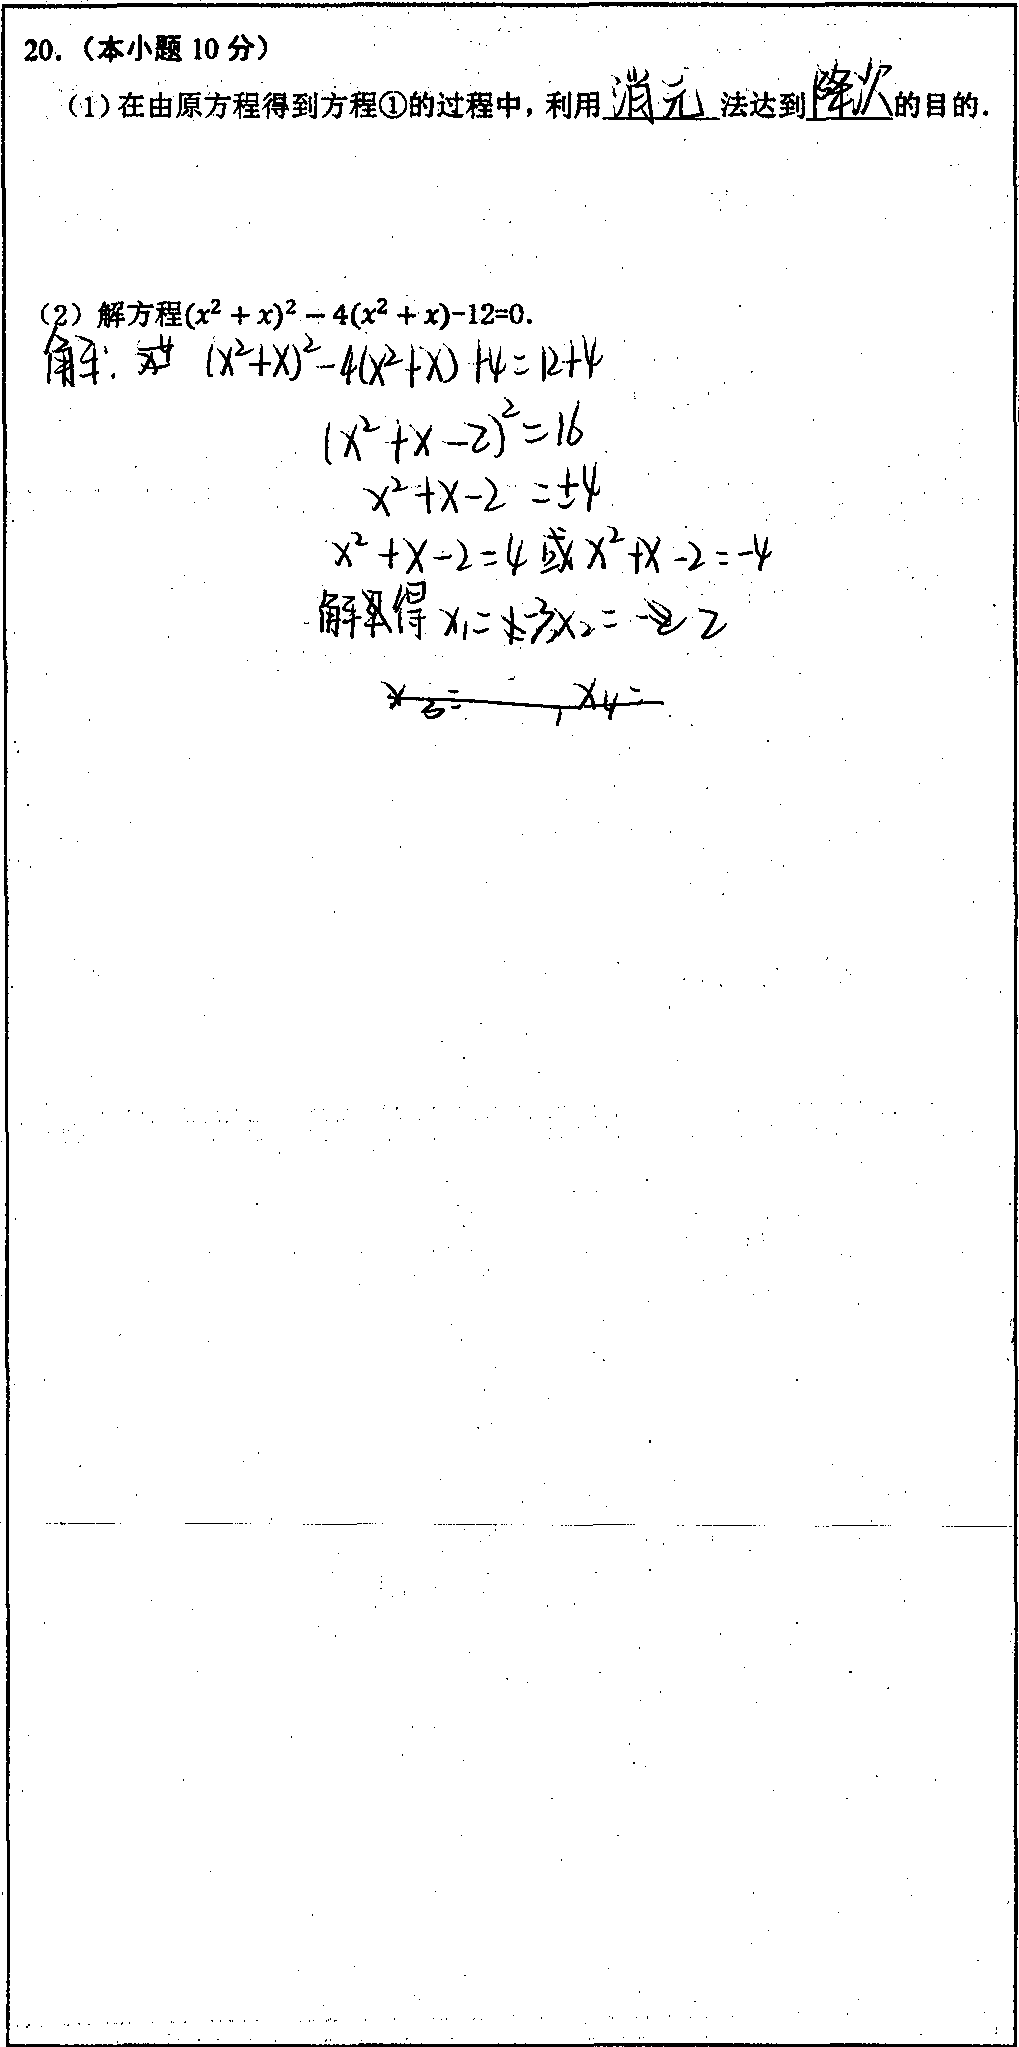 20.（本小题 10 分）
（1）在由原方程得到方程①的过程中，利用 消元 法达到 降次 的目的．
（2）解方程(x² + x)² − 4(x² + x)-12=0.
解: (x²+x)²-4(x²+x)+4=12+4
(x²+x-2)²=16
x²+x-2 =±4
x²+x-2=4 或 x²+x-2=-4
解得 x₁=-3, x₂= 2
x₃= , x₄=